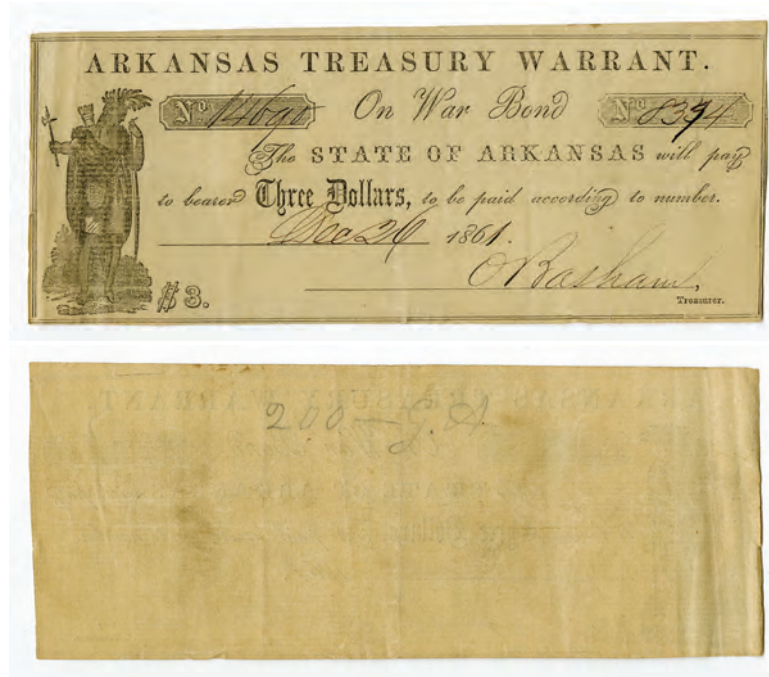 ARKANSAS TREASURY WARRANT.
No 14690 On War Bond No 8394
The STATE OF ARKANSAS will pay
to bearer Three Dollars, to be paid according to number.
Dec 26 1861.
O Basham,
Treasurer.
$3.
200—